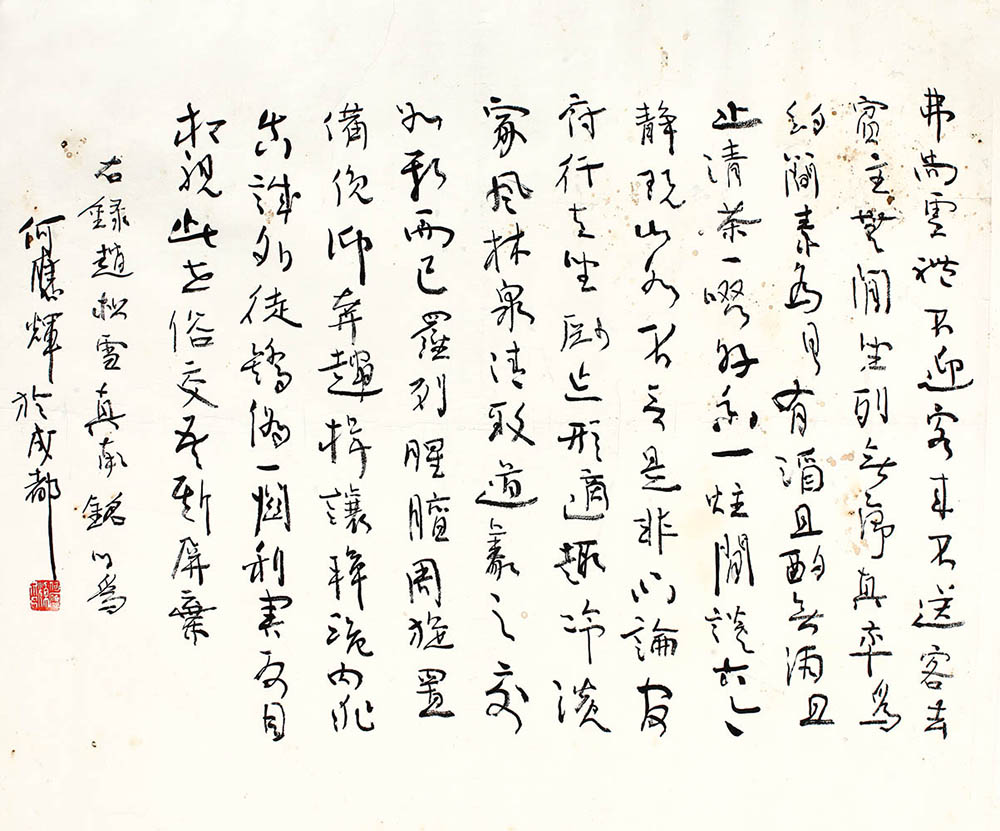 弗尚虛禮不迎客来不送客去
賓主無間坐列無序真率為
約簡素為具有酒且酌無酒且
止清茶一啜好香一炷閒談古今
靜玩山水不言是非不論官
府行立坐卧忘形適趣冷淡
家風林泉清致道義之交
如斯而已羅列腥膻周旋置
備俛仰奔趨揖讓拜跪内非
真誠外徒矯偽一關利害反目
相視此世俗交吾斯屏棄
右録趙松雪真率銘以為
何應輝於成都